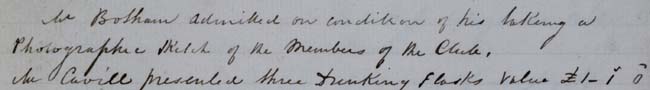 Mr Botham admitted on condition of his taking a
Photographic Sketch of the Members of the Club.
Mr Cavill presented three Drinking Flasks value £1-1 0